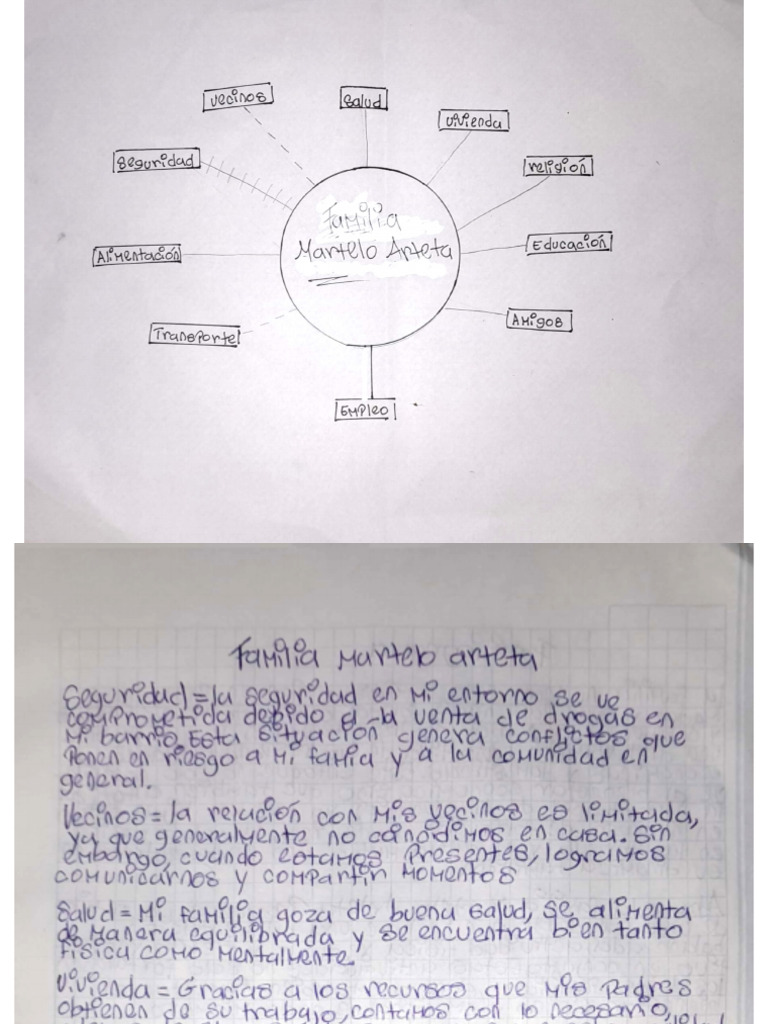 vecinos
salud
vivienda
seguridad
religión
Familia
Martelo Arteta
Educación
Alimentación
Amigos
Transporte
Empleo
Familia Martelo arteta
Seguridad = la seguridad en mi entorno se ve
comprometida debido a la venta de drogas en
mi barrio. Esta situación genera conflictos que
ponen en riesgo a mi famia y a la comunidad en
general.
Vecinos = la relación con mis vecinos es limitada,
ya que generalmente no en casa. Sin
embargo, cuando estamos presentes, logramos
comunicarnos y compartir momentos
Salud = Mi familia goza de buena salud, se alimenta
de manera equilibrada y se encuentra bien tanto
física como mentalmente.
Vivienda = Gracias a los recursos que mis padres
obtienen de su trabajo, contamos con lo necesario,